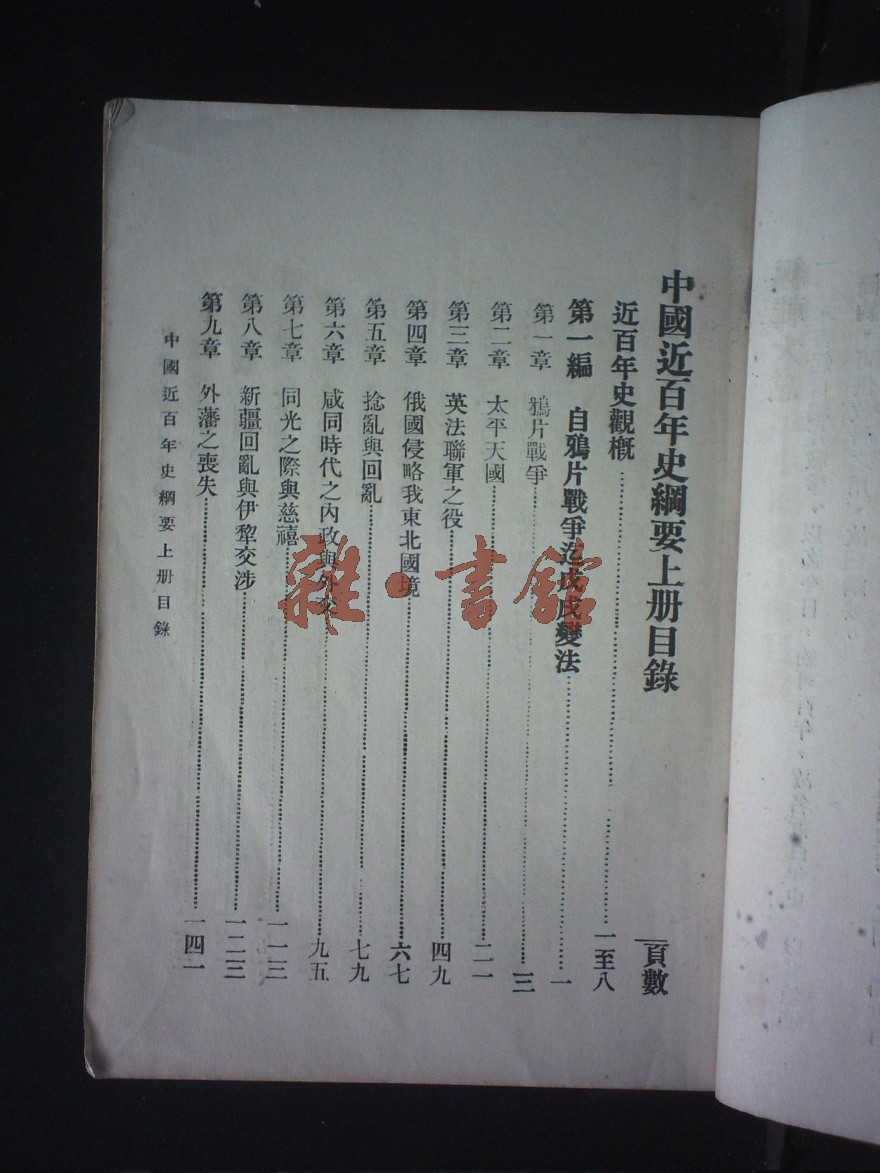 中國近百年史綱要上册目錄
頁數
近百年史觀概 一至八
第一編 自鴉片戰爭迄戊戌變法 一
第一章 鴉片戰爭 三
第二章 太平天國 二一
第三章 英法聯軍之役 四九
第四章 俄國侵略我東北國境 六七
第五章 捻亂與回亂 七九
第六章 咸同時代之內政與外交 九五
第七章 同光之際與慈禧 一一三
第八章 新疆回亂與伊犂交涉 一二三
第九章 外藩之喪失 一四一
中國近百年史綱要上册目錄
雜·書館